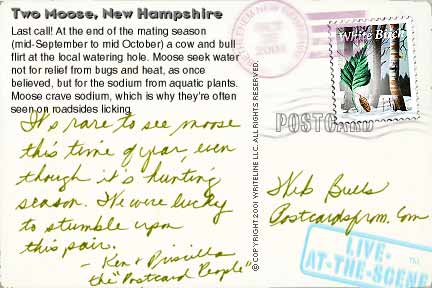 Two Moose, New Hampshire
Last call! At the end of the mating season
(mid-September to mid October) a cow and bull
flirt at the local watering hole. Moose seek water
not for relief from bugs and heat, as once
believed, but for the sodium from aquatic plants.
Moose crave sodium, which is why they're often
seen on roadsides licking
It's rare to see moose
this time of year, even
though it's hunting
season. We were lucky
to stumble upon
this pair.
- Ken & Priscilla
the "Postcard People"
© COPYRIGHT 2001 WRITELINE LLC. ALL RIGHTS RESERVED.
BETHLEHEM, NEW HAMPSHIRE
2001
White Birch
POSTCARD
Web Buds
Postcardsfrom.Com
LIVE-
AT-THE-SCENE
TM